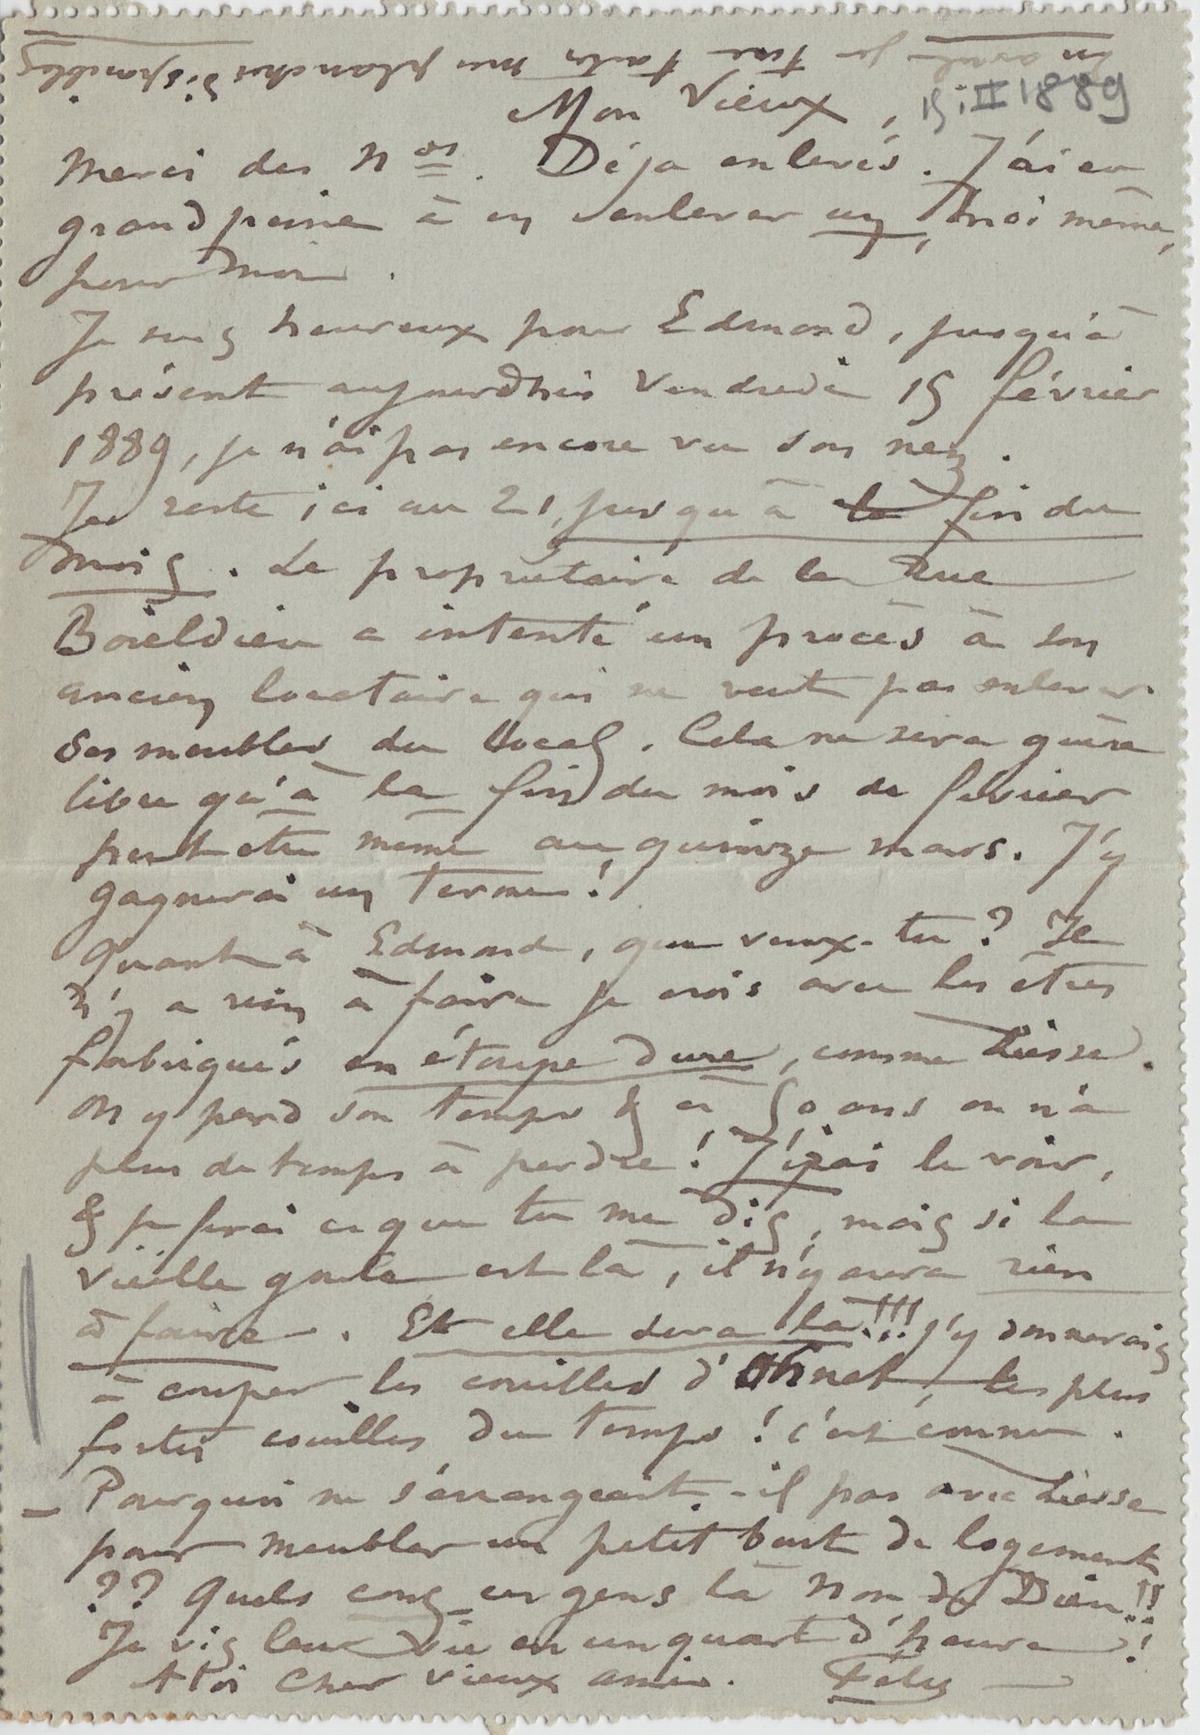 En avril je ferai toutes mes planches disponibles.
Mon Vieux, 15 II 1889
Merci des nos. Déja enlevés. J'ai eu
grand peine à en enlever un, moi même,
pour moi.
Je suis heureux pour Edmond, jusqu'à
présent aujourdhui vendredi 15 février
1889, je n'ai pas encore vu son nez.
Je reste ici au 21, jusqu'à la fin du
mois. Le propriétaire de la Rue
Boieldieu a intenté un procès à son
ancien locataire qui ne veut pas enlever
ses meubles du local. Cela ne sera guère
libre qu'à la fin du mois de février
peut etre même au quinze mars. J'y
gagnerai un terme!
Quant à Edmond, que veux-tu? Il
n'y a rien à faire je crois avec les êtres
fabriqués en étoupe dure, comme Liesse.
On y perd son temps & à 50 ans on n'a
plus de temps à perdre! J'irai le voir,
& je ferai ce que tu me dis, mais si la
vieille goule est là, il n'y aura rien
à faire. Et elle sera là!!! j'y donnerais
à couper les couilles d'Ohnet, les plus
fortes couilles du temps! c'est connu.
– Pourquoi ne s'arrangeait-il pas avec Liesse
pour meubler un petit bout de logement
?? Quels cons ces gens là Nom de Dieu!!
Je vis leur vie en un quart d'heure!
A toi cher vieux ami. Fély